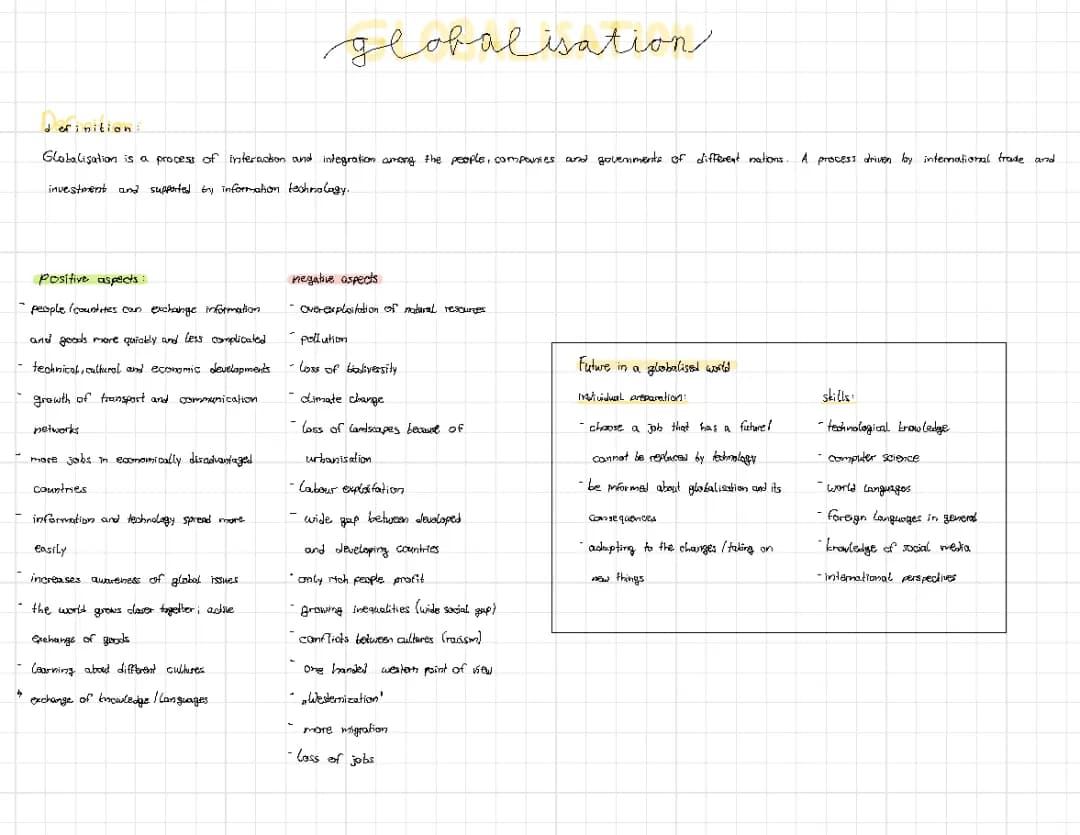 globalisation
Definition:
Globalisation is a process of interaction and integration among the people, companies and governments of different nations. A process driven by international trade and
investment and supported by information technology.
Positive aspects:
- people/countries can exchange information
and goods more quickly and less complicated
- technical, cultural and economic developments
- growth of transport and communication
networks
- more jobs in economically disadvantaged
countries
- information and technology spread more
easily
- increases awareness of global issues
- the world grows closer together; active
exchange of goods
- learning about different cultures
↳ exchange of knowledge/languages
negative aspects
- overexploitation of natural resources
- pollution
- loss of biodiversity
- climate change
- loss of landscapes because of
urbanisation
- labour exploitation
- wide gap between developed
and developing countries
- only rich people profit
- growing inequalities (wide social gap)
- conflicts between cultures (racism)
- one handed western point of view
- „Westernization'
- more migration
- loss of jobs
Future in a globalised world
Individual preparation:
- choose a job that has a future/
cannot be replaced by technology
- be informed about globalisation and its
consequences
- adapting to the changes/taking on
new things
skills:
- technological knowledge
- computer science
- world languages
- foreign languages in general
- knowledge of social media
- international perspectives